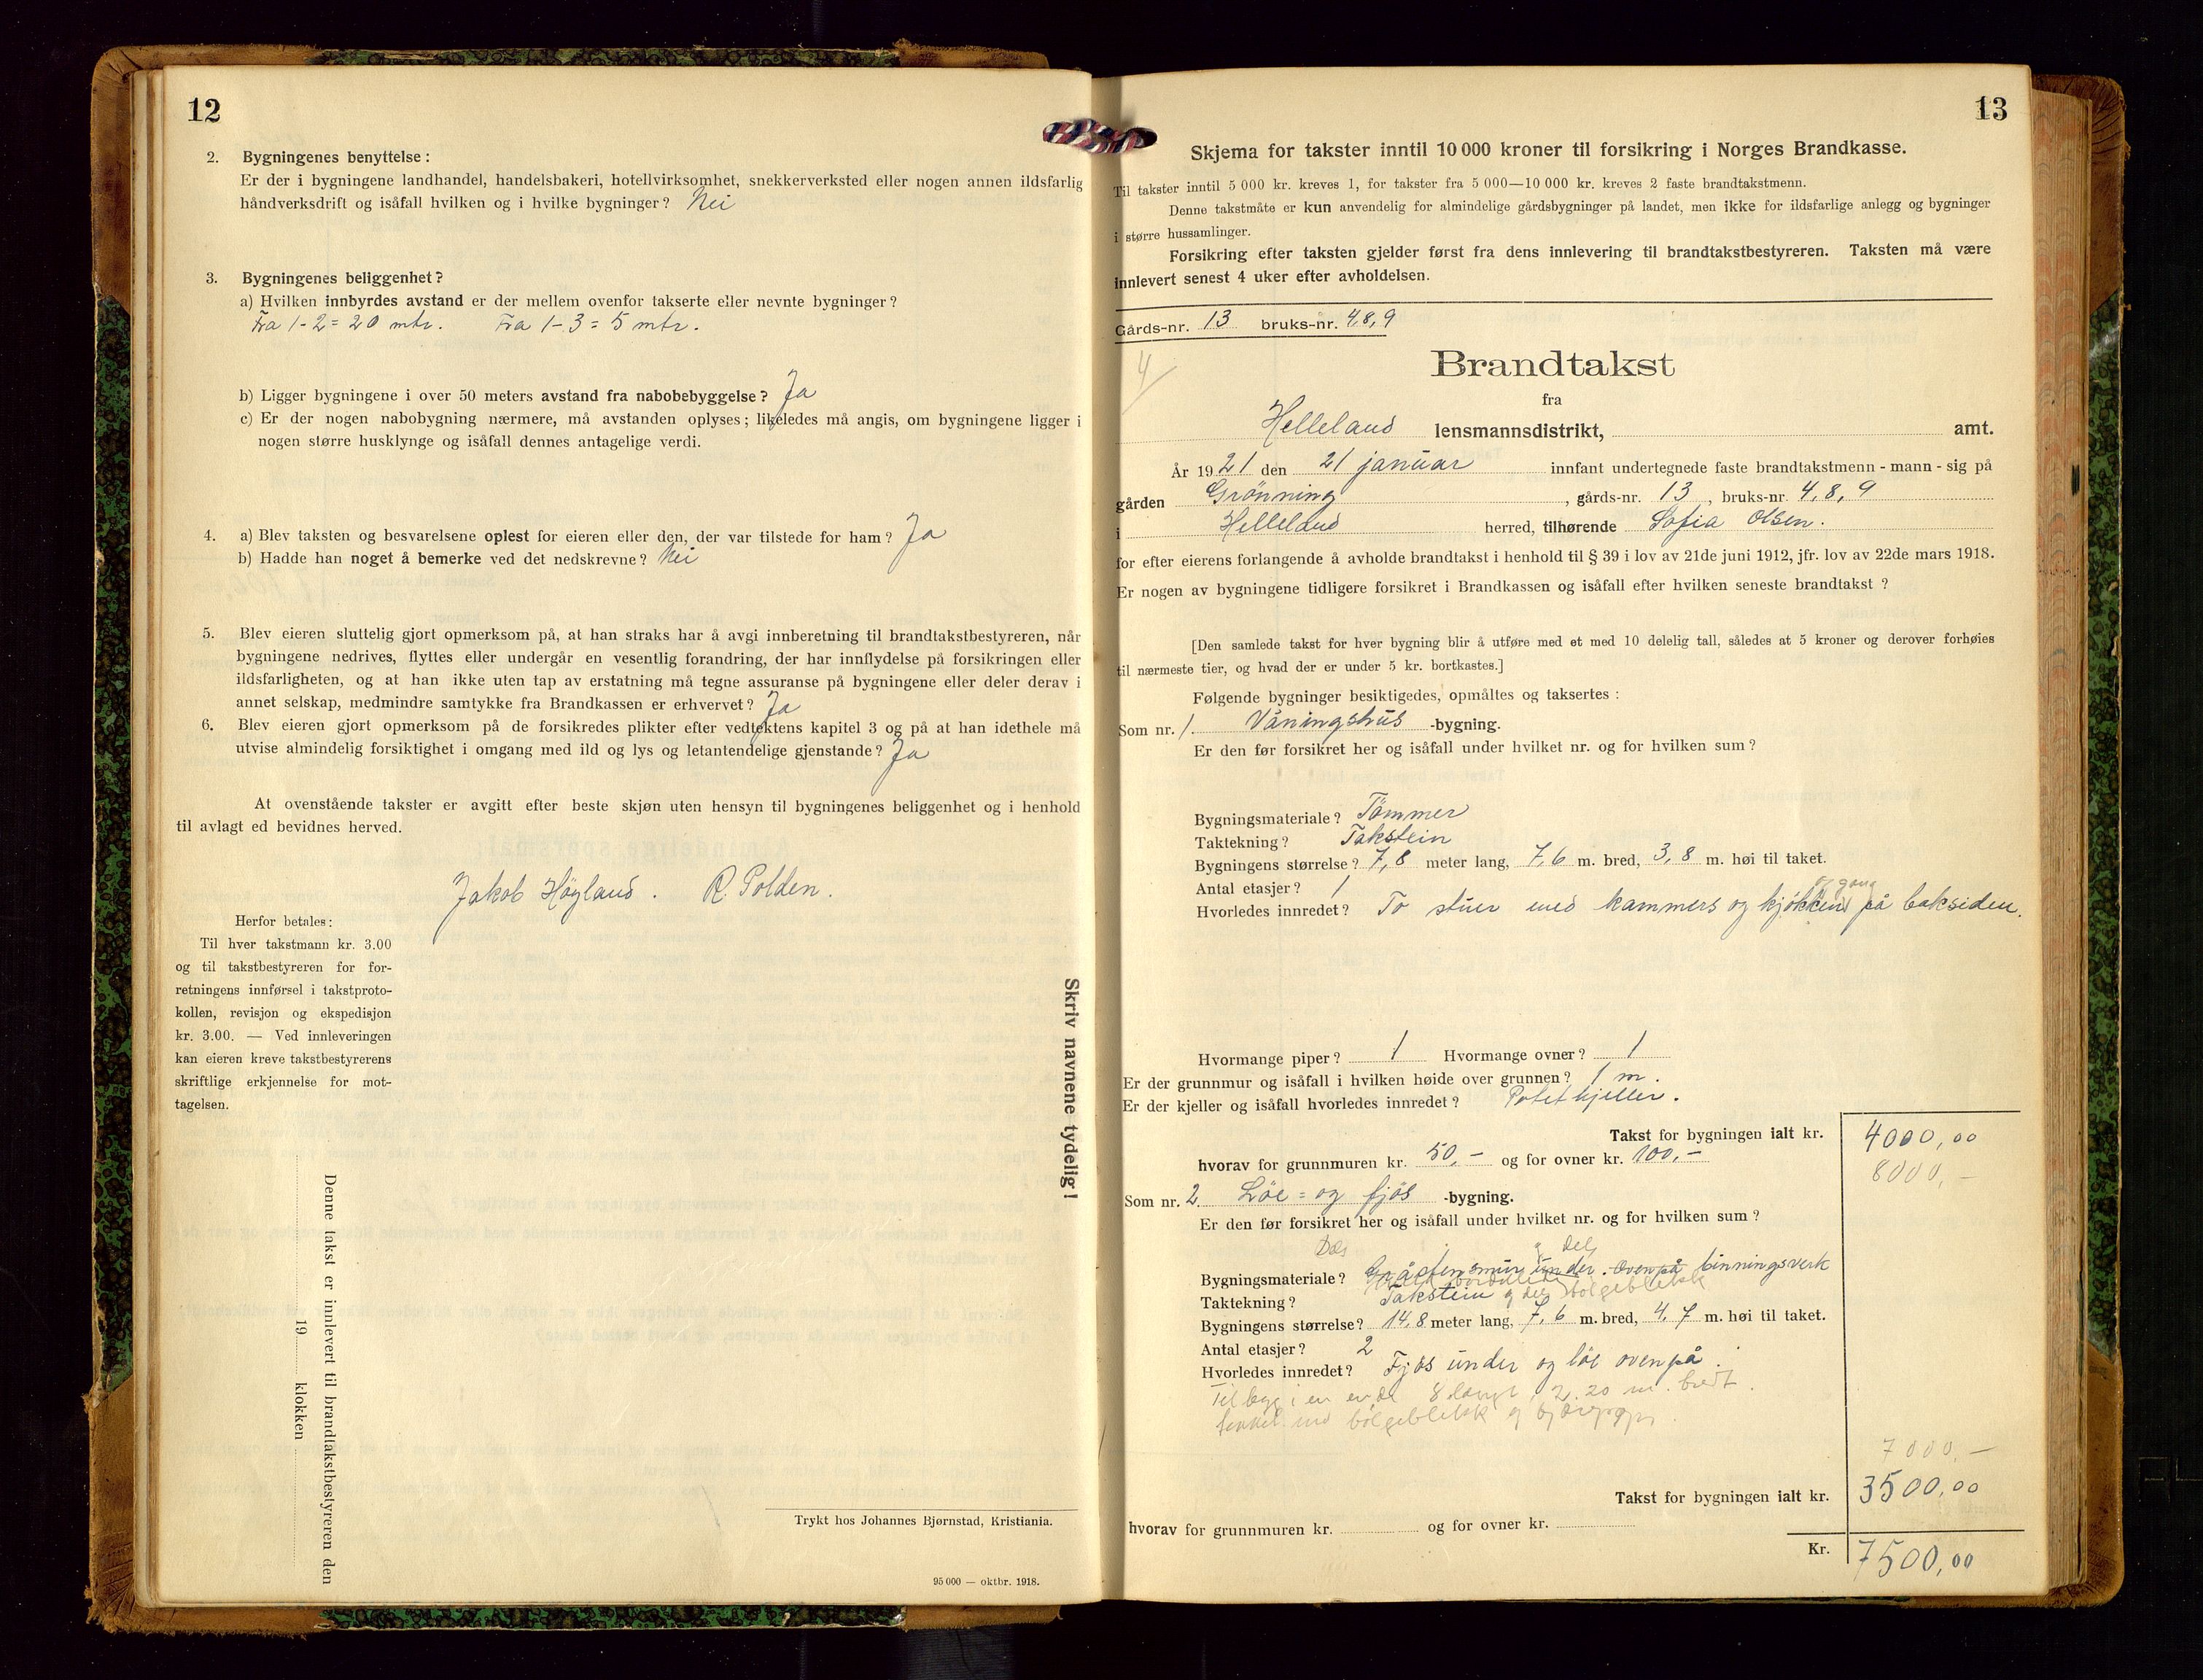 12
2. Bygningenes benyttelse:
Er der i bygningene landhandel, handelsbakeri, hotellvirksomhet, snekkerverksted eller nogen annen ildsfarlig
håndverksdrift og isåfall hvilken og i hvilke bygninger? Nei
3. Bygningenes beliggenhet?
a) Hvilken innbyrdes avstand er der mellem ovenfor takserte eller nevnte bygninger?
Fra 1-2 = 20 mtr. Fra 1-3 = 5 mtr.
b) Ligger bygningene i over 50 meters avstand fra nabobebyggelse? Ja
c) Er der nogen nabobygning nærmere, må avstanden oplyses; likeledes må angis, om bygningene ligger i
nogen større husklynge og isåfall dennes antagelige verdi.
4. a) Blev taksten og besvarelsene oplest for eieren eller den, der var tilstede for ham? Ja
b) Hadde han noget å bemerke ved det nedskrevne? Nei
5. Blev eieren sluttelig gjort opmerksom på, at han straks har å avgi innberetning til brandtakstbestyreren, når
bygningene nedrives, flyttes eller undergår en vesentlig forandring, der har innflydelse på forsikringen eller
ildsfarligheten, og at han ikke uten tap av erstatning må tegne assuranse på bygningene eller deler derav i
annet selskap, medmindre samtykke fra Brandkassen er erhvervet? Ja
6. Blev eieren gjort opmerksom på de forsikredes plikter efter vedtektens kapitel 3 og på at han idethele må
utvise almindelig forsiktighet i omgang med ild og lys og letantendelige gjenstande? Ja
At ovenstående takster er avgitt efter beste skjøn uten hensyn til bygningenes beliggenhet og i henhold
til avlagt ed bevidnes herved.
Jakob Höyland. R. Polden.
Herfor betales:
Til hver takstmann kr. 3.00
og til takstbestyreren for for-
retningens innførsel i takstproto-
kollen, revisjon og ekspedisjon
kr. 3.00. — Ved innleveringen
kan eieren kreve takstbestyrerens
skriftlige erkjennelse for mot-
tagelsen.
Skriv navnene tydelig!
Denne takst er innlevert til brandtakstbestyreren den
19 klokken
Trykt hos Johannes Bjørnstad, Kristiania.
95 000 — oktbr. 1918.
13
Skjema for takster inntil 10 000 kroner til forsikring i Norges Brandkasse.
Til takster inntil 5 000 kr. kreves 1, for takster fra 5 000—10 000 kr. kreves 2 faste brandtakstmenn.
Denne takstmåte er kun anvendelig for almindelige gårdsbygninger på landet, men ikke for ildsfarlige anlegg og bygninger
i større hussamlinger.
Forsikring efter taksten gjelder først fra dens innlevering til brandtakstbestyreren. Taksten må være
innlevert senest 4 uker efter avholdelsen.
Gårds-nr. 13 bruks-nr. 4,8,9
4
Brandtakst
fra
Helleland lensmannsdistrikt, amt.
År 1921 den 21 januar innfant undertegnede faste brandtakstmenn - mann - sig på
gården Grönning, gårds-nr. 13, bruks-nr. 4, 8, 9
i Helleland herred, tilhørende Sofia Olsen.
for efter eierens forlangende å avholde brandtakst i henhold til § 39 i lov av 21de juni 1912, jfr. lov av 22de mars 1918.
Er nogen av bygningene tidligere forsikret i Brandkassen og isåfall efter hvilken seneste brandtakst?
[Den samlede takst for hver bygning blir å utføre med et med 10 delelig tall, således at 5 kroner og derover forhøies
til nærmeste tier, og hvad der er under 5 kr. bortkastes.]
Følgende bygninger besiktigedes, opmåltes og taksertes:
Som nr. 1. Våningshus -bygning.
Er den før forsikret her og isåfall under hvilket nr. og for hvilken sum?
Bygningsmateriale? Tömmer
Taktekning? Takstein
Bygningens størrelse? 7,8 meter lang, 7,6 m. bred, 3,8 m. høi til taket.
Antal etasjer? 1
og gang
Hvorledes innredet? To stuer med kammers og kjøkken på baksiden.
Hvormange piper? 1 Hvormange ovner? 1
Er der grunnmur og isåfall i hvilken høide over grunnen? 1 m.
Er der kjeller og isåfall hvorledes innredet? Potetkjeller.
Takst for bygningen ialt kr. 4000,00
8000,—
hvorav for grunnmuren kr. 50,— og for ovner kr. 100,—
Som nr. 2. Löe= og fjös -bygning.
Er den før forsikret her og isåfall under hvilket nr. og for hvilken sum?
Bygningsmateriale? Gråstensmur under. Ovenpå binningsverk
Taktekning? Takstein og del bölgeblekk
Bygningens størrelse? 14,8 meter lang, 7,6 m. bred, 4,7 m. høi til taket.
Antal etasjer? 2
Hvorledes innredet? Fjös under og löe ovenpå.
Tilbygg i en ende 8 langt, 2.20 m. bredt.
bölgeblekk og
7000,—
Takst for bygningen ialt kr. 3500,00
hvorav for grunnmuren kr. og for ovner kr.
Kr. 7500,00